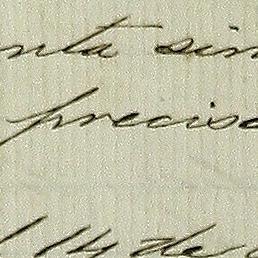 nta sin
precisa
14 de